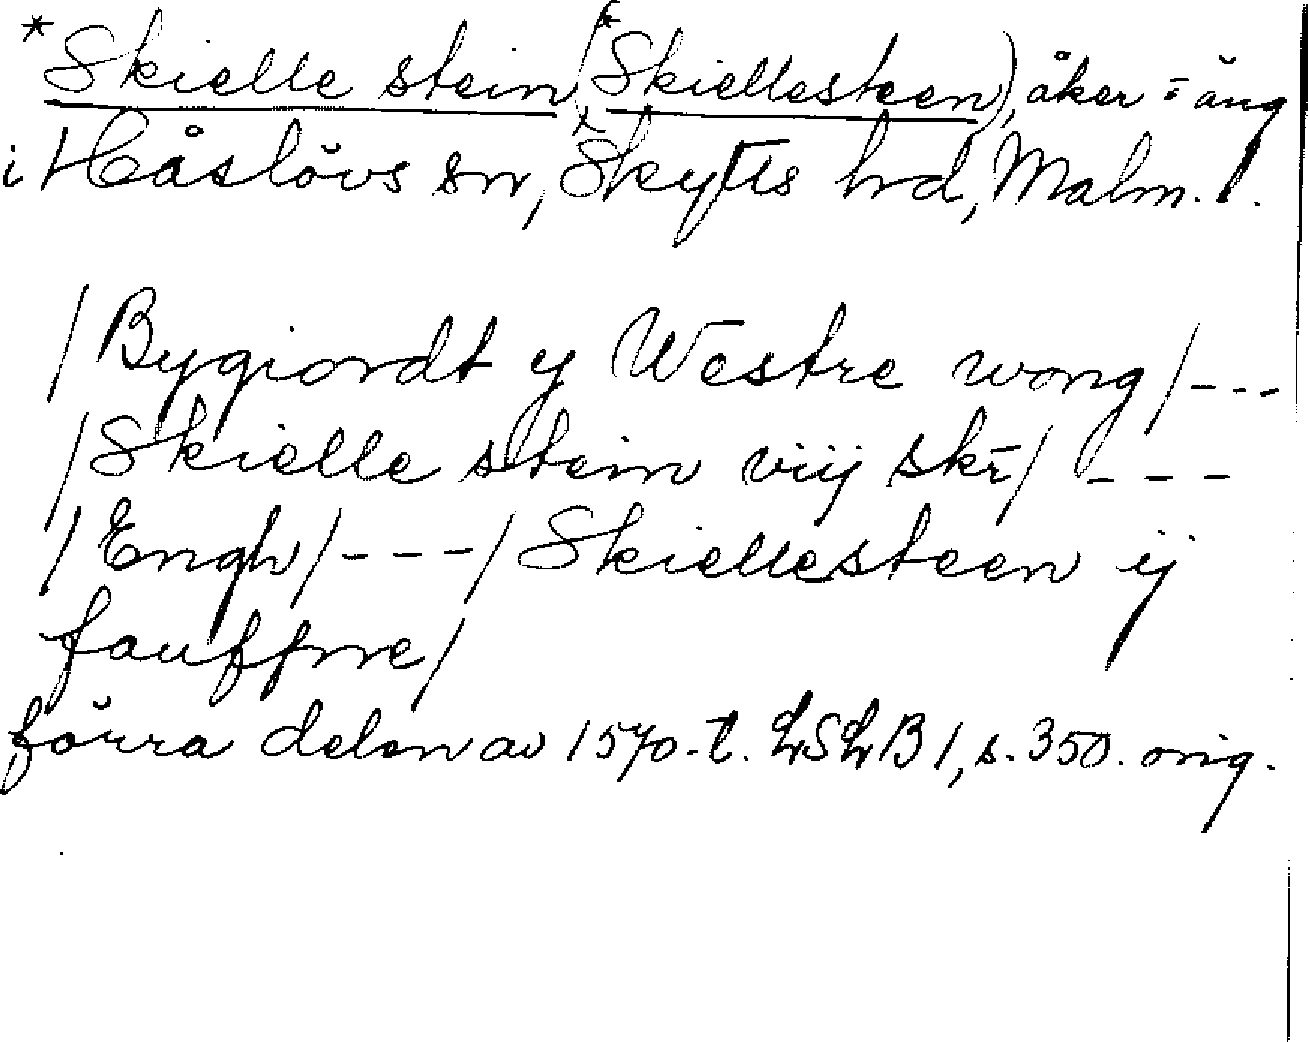 *Skielle stein (*Skiellesteen), åker = äng
i Håslövs sn, Skytts hrd, Malm. l.
/Bygiordt y Westre wong/---
/Skielle stein viij skr̄/ ---
/Engh/---/Skiellesteen ij
fauffnne/
förra delen av 1570-t. LSLB 1, s. 350. orig.